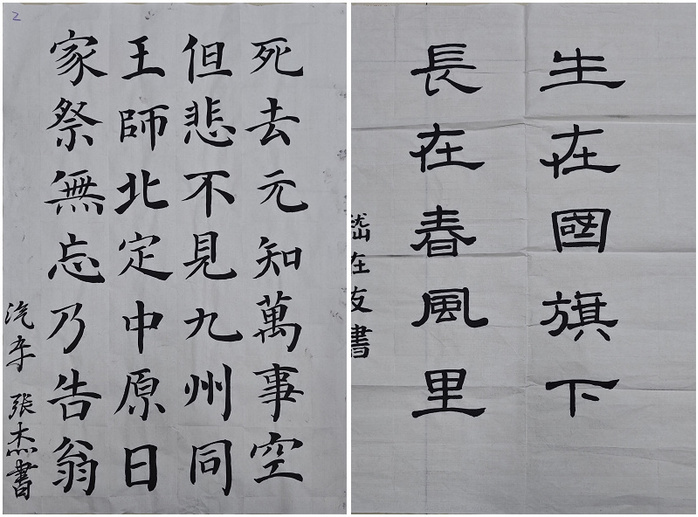 2
死去元知萬事空
但悲不見九州同
王師北定中原日
家祭無忘乃告翁
汽车 張杰書
生在國旗下
長在春風里
在友書